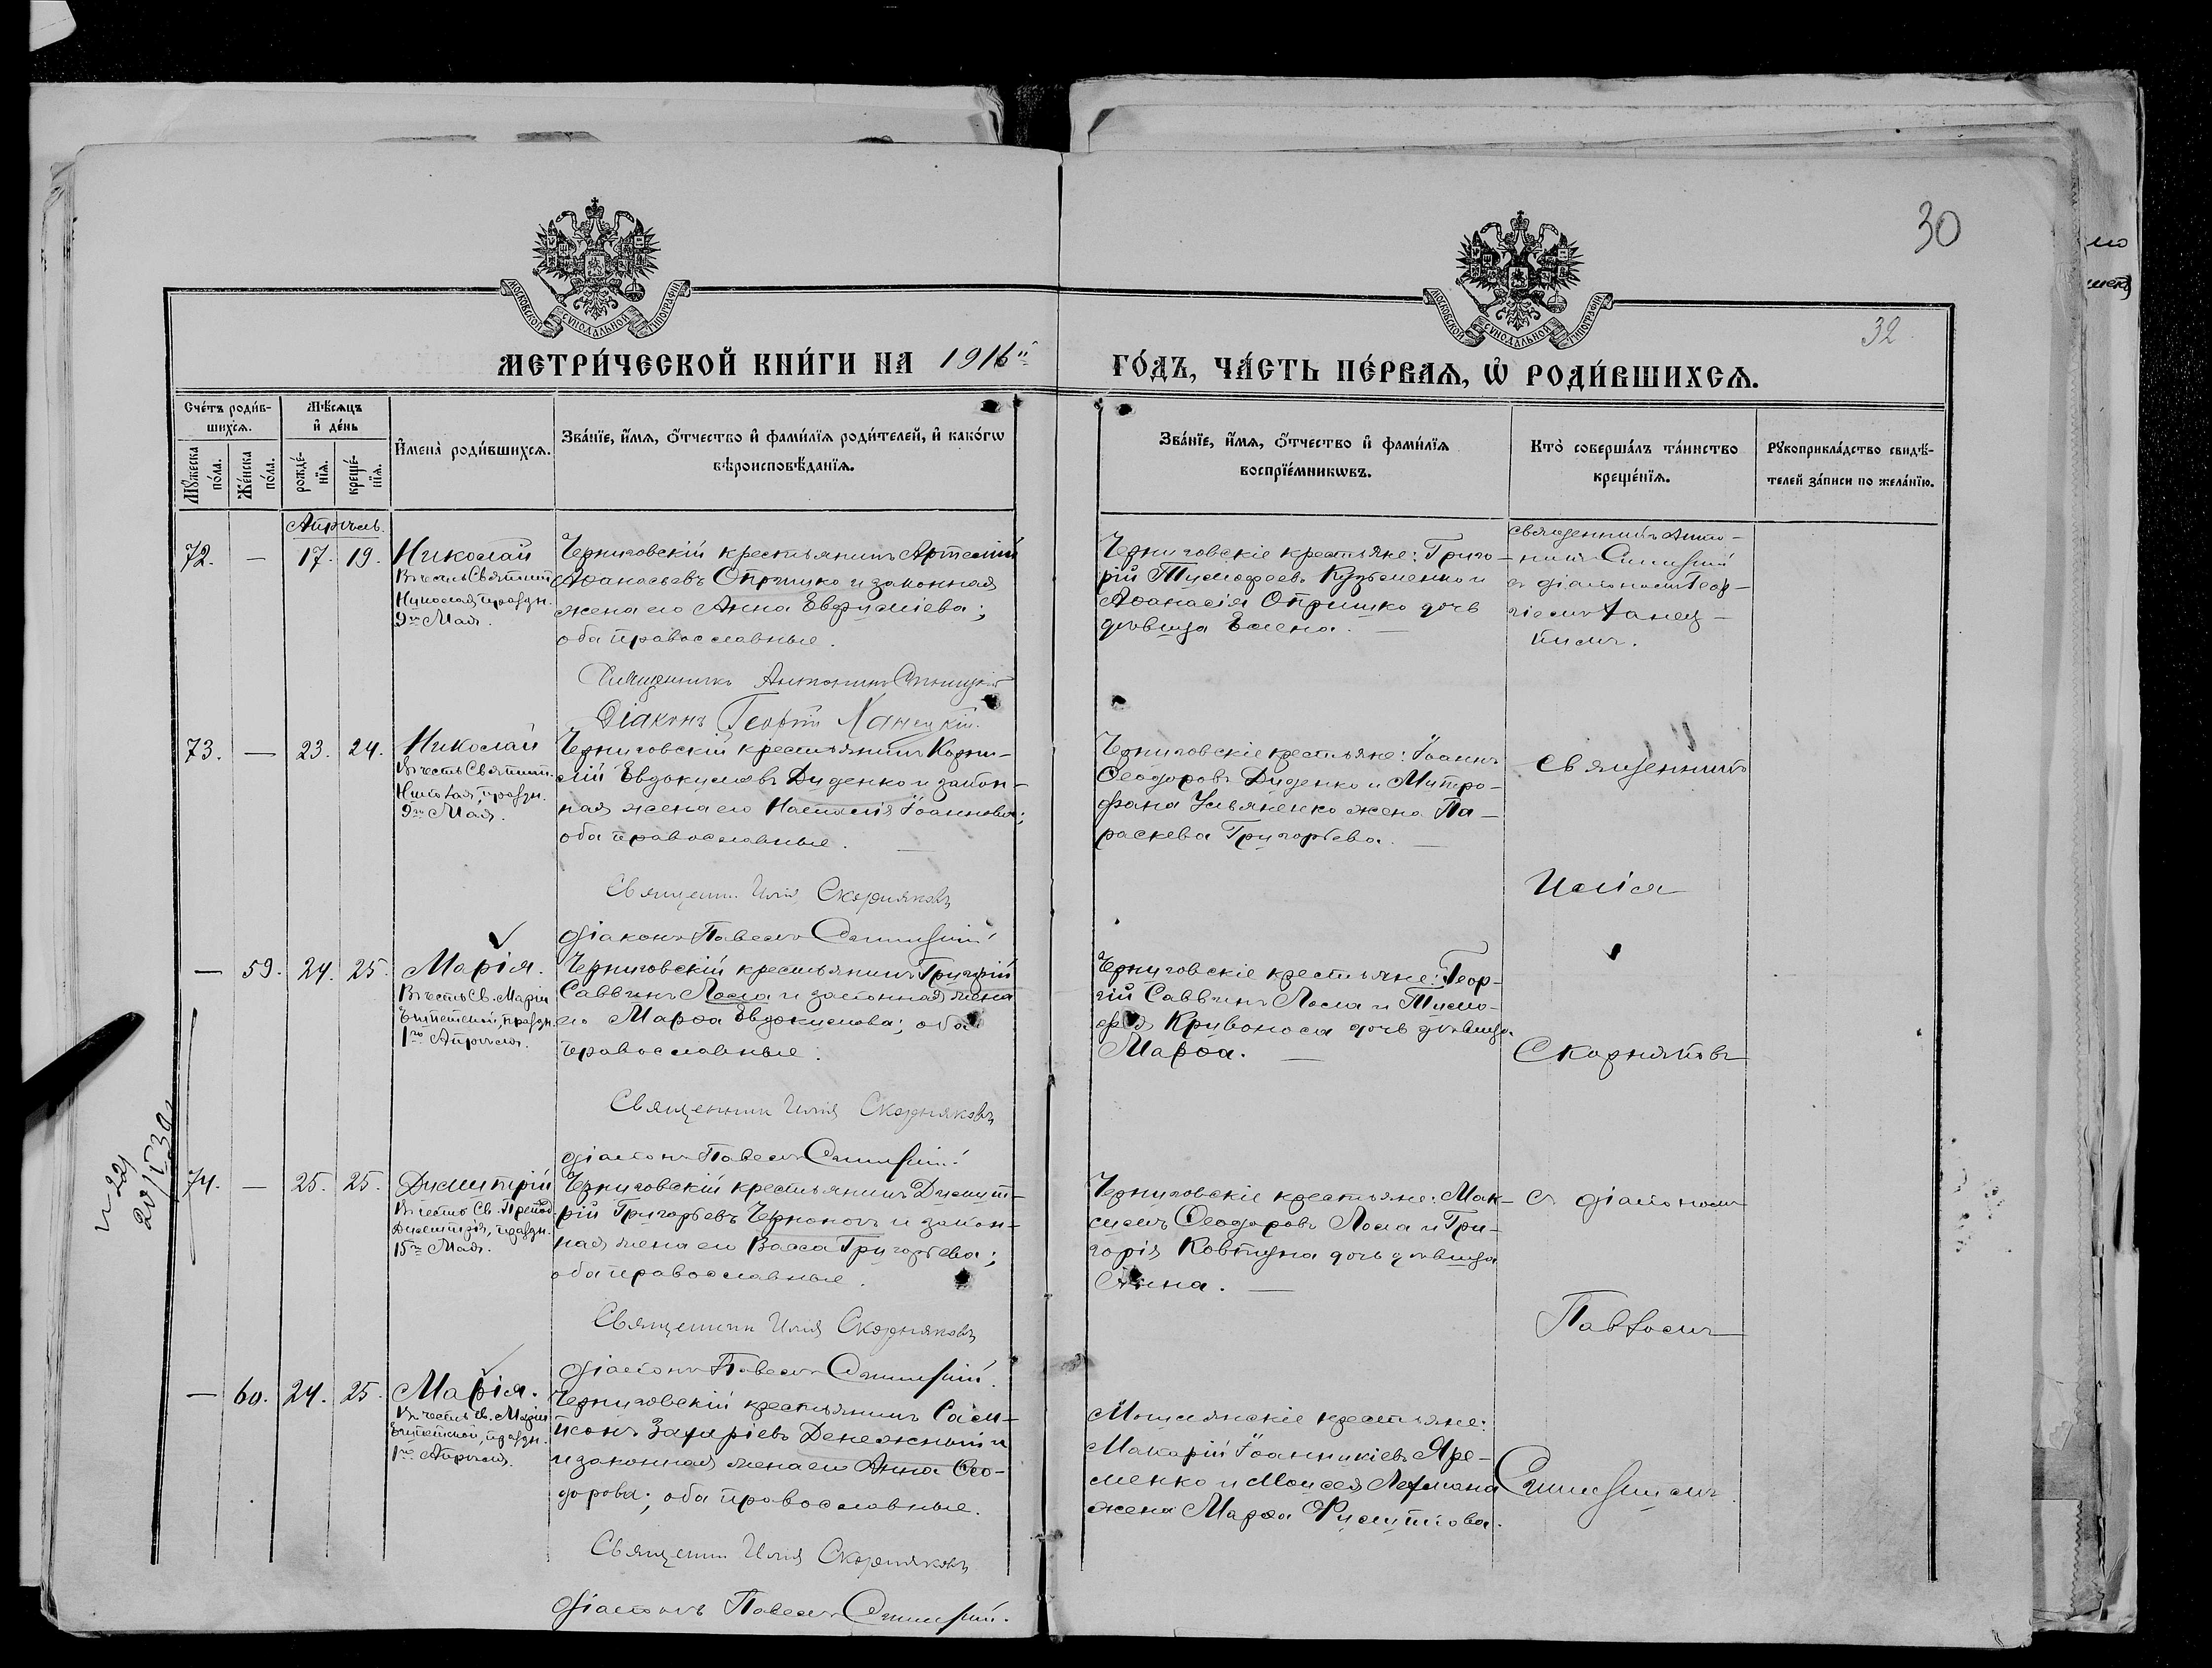 30
32
МОСКОВСКОЙ СѴНОДАЛЬНОЙ ТИПОГРАФІИ
МОСКОВСКОЙ СѴНОДАЛЬНОЙ ТИПОГРАФІИ
МЕТРИ́ЧЕСКОЙ КНИ́ГИ НА 1916й
ГО́ДЪ, ЧА́СТЬ ПЕ́РВАЯ, Ѡ РОДИ́ВШИХСЯ.
Сче́тъ роди́в-
шихся.
Мѣ́сяцъ
и де́нь
Мꙋжеска по́ла.
Же́нска по́ла.
рожде́-
нїя.
креще́-
нїя.
Имена̀ роди́вшихся.
Зва́нїе, и́мя, о́тчество и фами́лїя роди́телей, и како́гѡ
вѣроисповѣ́данїя.
Зва́нїе, и́мя, о́тчество и фами́лїя
воспрїе́мникѡвъ.
Кто̀ соверша́лъ та́инство
креще́нїя.
Рꙋкоприкла́дство свидѣ́-
телей за́писи по жела́нїю.
Апрѣль.
72. — 17. 19. Николай
Въ честь Святит.
Николая, праздн.
9го Мая.
Черниговскій крестьянинъ Артемій
Аѳанасьевъ Опришко и законная
жена его Анна Евфиміева;
оба православные.
Священникъ Антонинъ Синицкій
Діаконъ Георгій Ханецкій.
Черниговскіе крестьяне: Григо-
рій Тимофеевъ Кузьменко и
Аѳанасія Опришко дочь
дѣвица Елена. —
Священникъ Анто-
нинъ Синицкій
съ діакономъ Геор-
гіемъ Ханец-
кимъ.
73. — 23. 24. Николай
Въ честь Святит.
Николая, праздн.
9го Мая.
Черниговскій крестьянинъ Корни-
лій Евдокимовъ Диденко и закон-
ная жена его Настасія Іоаннова;
оба православные. —
Священн. Илія Скорняковъ
діаконъ Павелъ
Черниговскіе крестьяне: Іоаннъ
Ѳеодоровъ Диденко и Митро-
фана Ульяненко жена Па-
раскева Григорьева. —
Священникъ
Илія
Скорняковъ
съ діакономъ
Павломъ
— 59. 24. 25. Марія.
Въ честь Св. Маріи
Египетской, праздн.
1го Апрѣля.
Черниговскій крестьянинъ Григорій
Саввинъ Лома и законная жена
его Марѳа Евдокимова; оба
православные.
Священникъ Илія Скорняковъ
діаконъ Павелъ
Черниговскіе крестьяне: Геор-
гій Саввинъ Лома и Тимо-
фея Кривоноса дочь дѣвица
Марѳа. —
74. — 25. 25. Димитрій
Въ честь Св. Препод.
Димитрія, праздн.
15го Мая.
Черниговскій крестьянинъ Димит-
рій Григорьевъ и закон-
ная жена его Васса Григорьева;
оба православные.
Священникъ Илія Скорняковъ
діаконъ Павелъ
Черниговскіе крестьяне: Мак-
симъ Ѳеодоровъ Лома и Гри-
горія Ковтуна дочь дѣвица
Анна. —
— 60. 24. 25. Марія.
Въ честь Св. Маріи
Египетской, праздн.
1го Апрѣля.
Черниговскій крестьянинъ Сам-
псонъ Захаріевъ Денежный и
и законная жена его Анна Ѳео-
дорова; оба православные.
Священн. Илія Скорняковъ
діаконъ Павелъ
крестьяне:
Макарій Іоанникіевъ Яре-
менко и Моисея
жена Марѳа